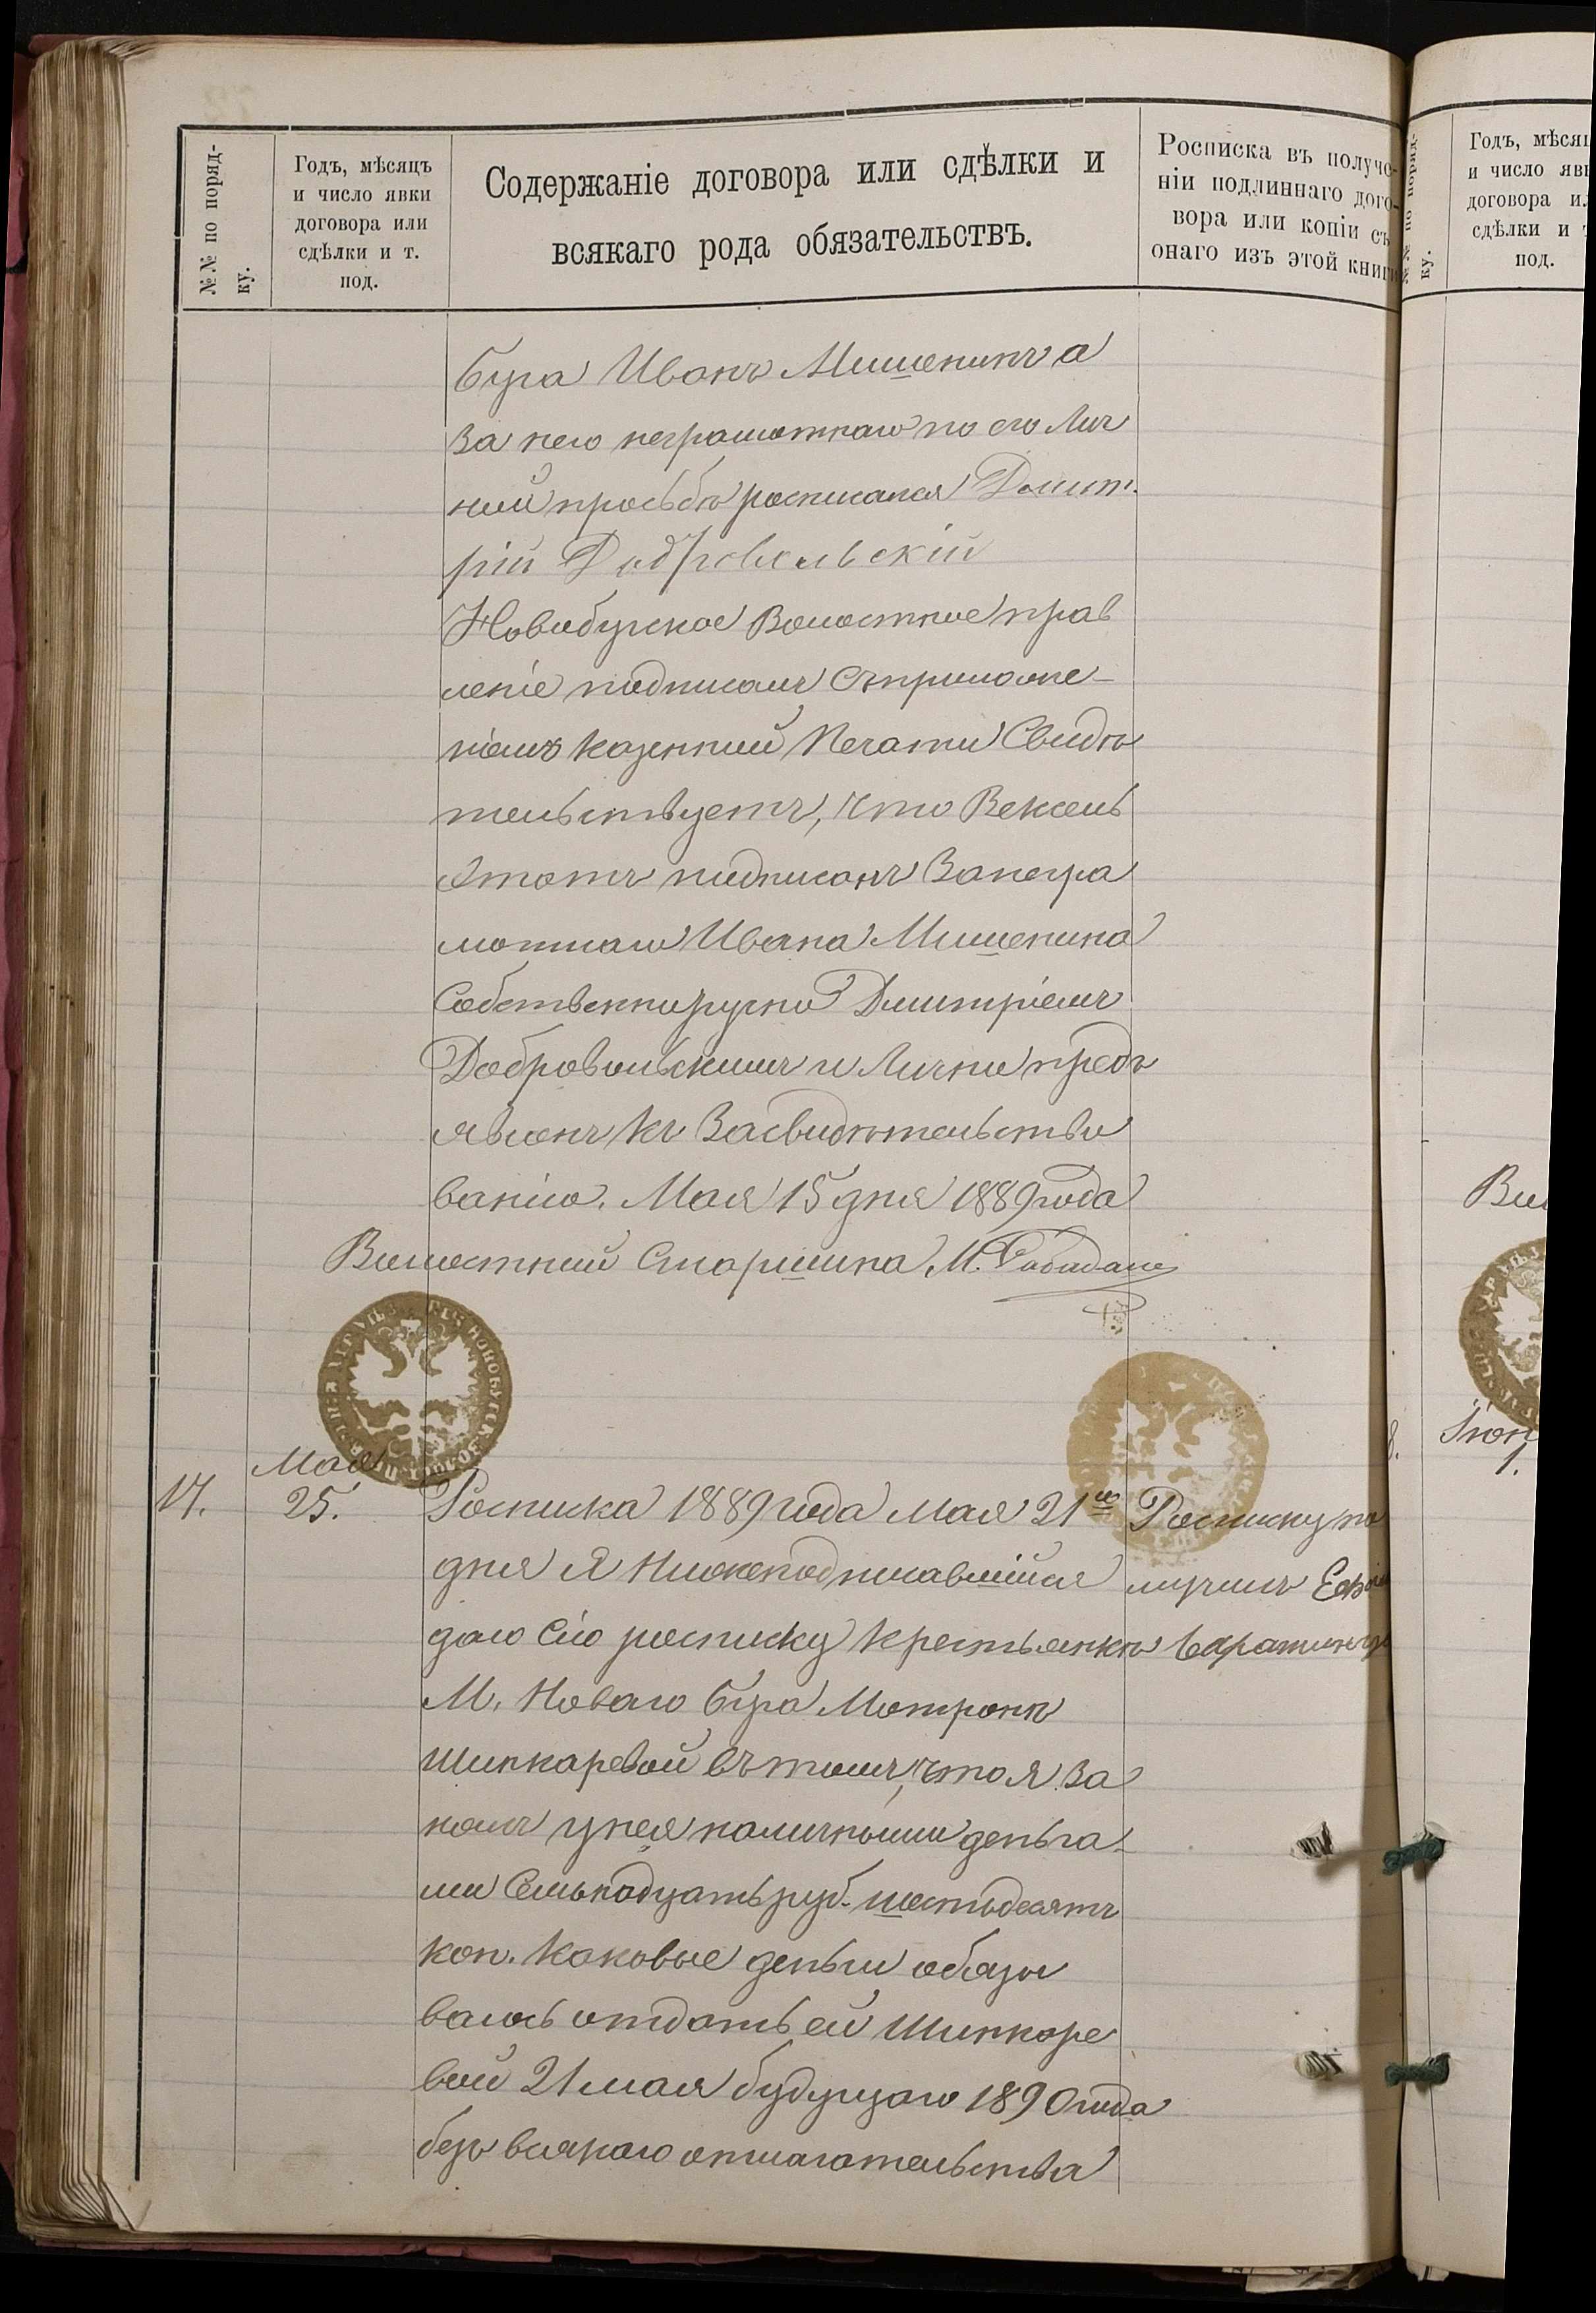 №№ по поряд-
ку.
Годъ, мѣсяцъ
и число явки
договора или
сдѣлки и т.
под.
Содержаніе договора или сдѣлки и
всякаго рода обязательствъ.
Росписка въ получе-
ніи подлиннаго дого-
вора или копіи съ
онаго изъ этой книги
Буга Иванъ Мишенинъ а
за него неграмотнаго по его лич
ной просьбѣ росписался Дмит-
рій Добровольскій
Новобугское Волостное прав
леніе подписомъ съ приложе-
ніемъ казенной печати Свидѣ
тельствуетъ, что Вексель
этотъ подписанъ За негра
мотнаго Ивана Мишенина
Собственноручно Дмитріемъ
Добровольскимъ и Лично предъ
явленъ къ Засвидѣтельство
ванію. Мая 15 дня 1889 года
Волостной Старшина М.
17.
Мая
25.
Росписка 1889 года Мая 21го
дня я Нижеподписавшійся
даю сію росписку крестьянкѣ
М. Новаго Буга Матронѣ
Шинкаревой въ томъ, что я за
нялъ у нея наличными деньга-
ми Семьнадцать руб. шестьдесятъ
коп. каковые деньги обязы
ваюсь отдать ей Шинкаре
вой 21 мая будущаго 1890 года
безъ всякаго отлагательства
Росписку по
лучилъ
№№ по поряд-
ку.
Годъ, мѣсяц
и число явк
договора ил
сдѣлки и т
под.
Во
8.
Іюн
1.